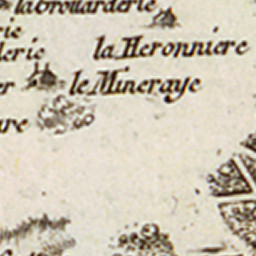 la Grouarderie
rie
la Heronniere
lerie
le Mineraye
er
ure